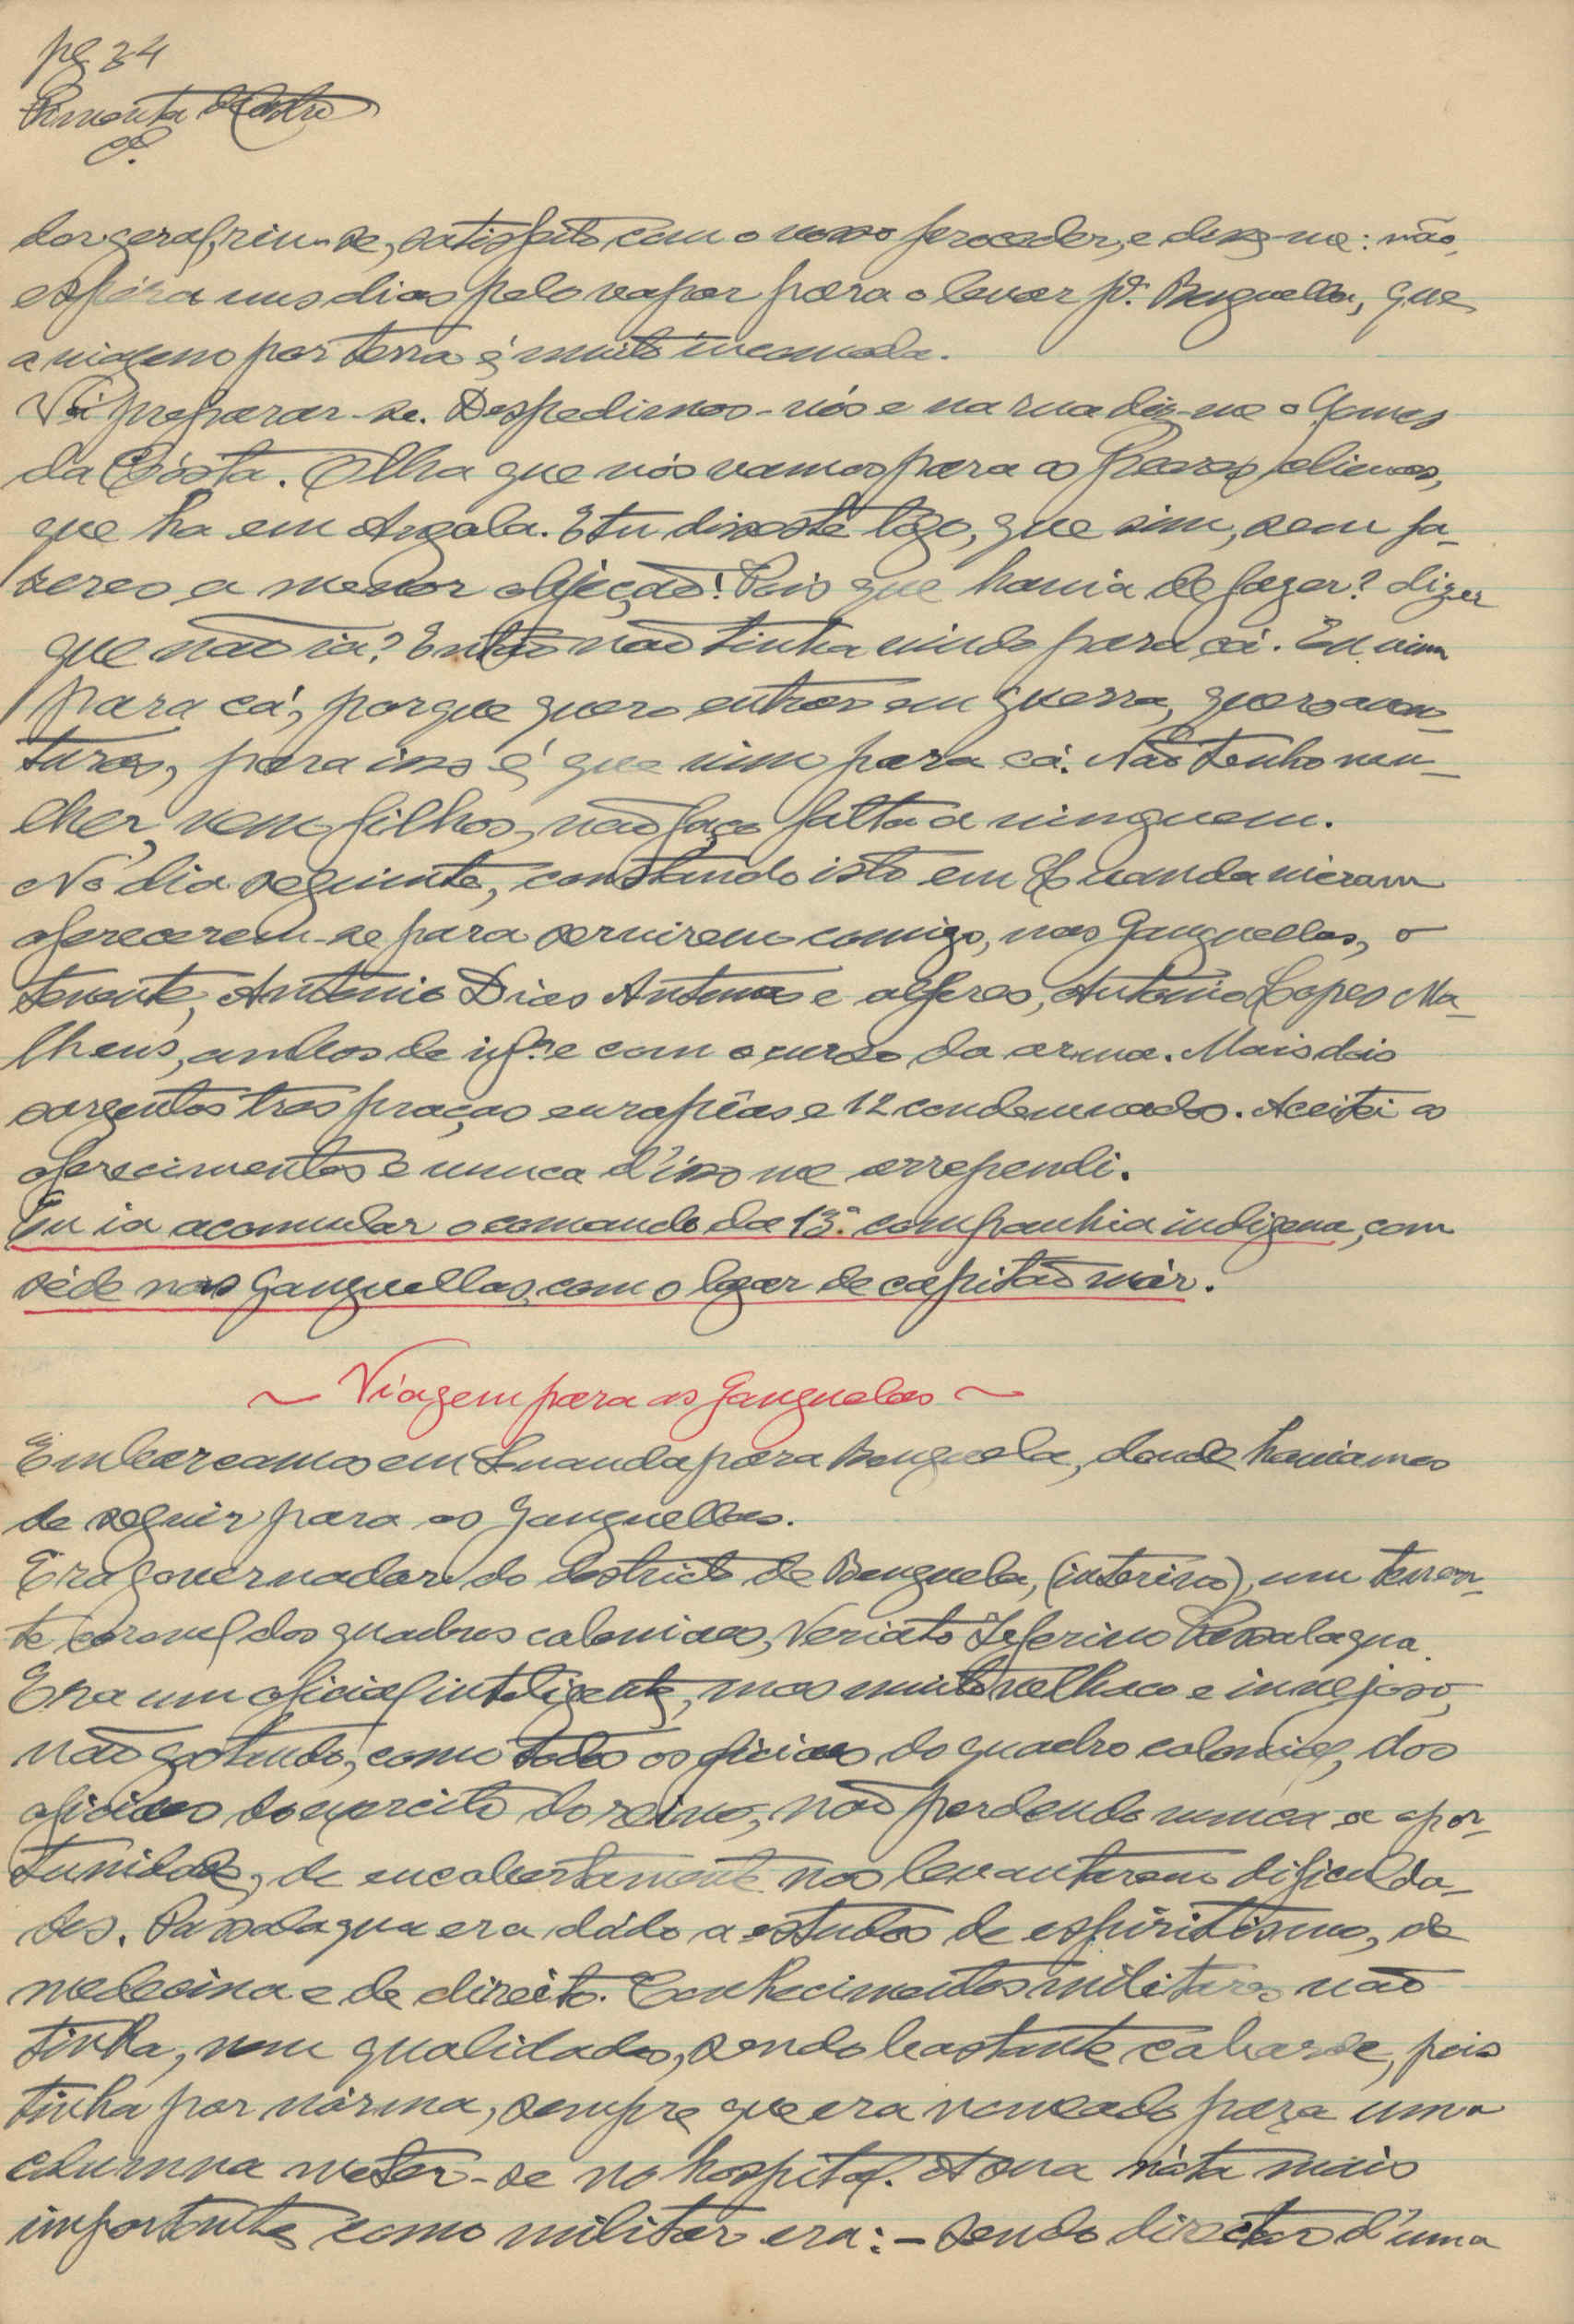 pg 34
Pimenta de Castro
dor geral, riu-se, satisfeito com o nosso proceder, e disse-me: não,
espéra uns dias pelo vapor para o levar pª. Benguella, que
a viagem por terra é muito incomoda.
Vá preparar-se. Despedimos-nós e na rua diz-me o Gomes
da Cósta. Olha que nós vamos para os peores climas,
que ha em Angola. E tu disseste lógo, que sim, sem fa-
zeres a menor objéção! Pois que havia de fazer? dizer
que não ia? Então não tinha vindo para cá. Eu vim
para cá, porque quero entrar em guerra, quero aven-
turas, para isso é que vim para cá. Não tenho mu-
lher, nem filhos, não faço falta a ninguem.
No dia seguinte, constando isto em Luanda vieram
oferecerem-se para servirem comigo, nas Ganguellas, o
tenente, Antonio Dias Antunes e alferes, Antonio Lopes Ma-
theus, ambos de infª e com o curso da arma. Mais dois
sargentos tres praças europêas e 12 condemnados. Aceitei os
oferecimentos e nunca d'isso me arrependi.
Eu ia acomular o comando da 13ª. companhia indigena, com
séde nas Ganguellas, com o logar de capitão mór.
~ Viagem para as Ganguelas ~
Embarcamos em Luanda para Benguela, donde haviamos
de seguir para as Ganguellas.
Era governador do destricto de Benguela, (interino), um tenen-
te coronel dos quadros coloniaes, Veriato Zeferino Passalaqua.
Era um oficial inteligente, mas muito velhaco e invejoso,
não gostando, como todos os oficiaes do quadro colonial, dos
oficiaes do exercito do reino, não perdendo nunca a opor-
tunidade, de encobertamente nos levantarem dificulda-
des. Passalaqua era dádo a estudos de espiritismo, de
medecina e de direito. Conhecimentos militares não
tinha, nem qualidades, sendo bastante cobarde, pois
tinha por nórma, sempre que era nomeado para uma
columna meter-se no hospital. A sua nóta mais
importante como militar era: - sendo director d'uma